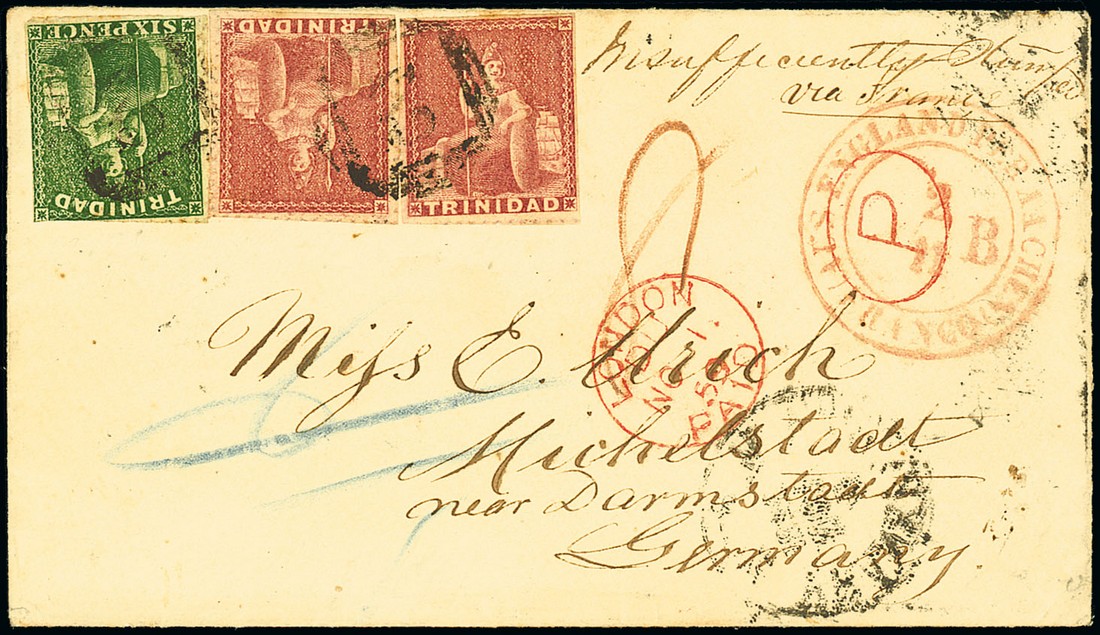 SIX PENCE
TRINIDAD
TRINIDAD
TRINIDAD
Insufficiently Stamped
via France
AUS ENGLAND PER AACHEN
FRANCO
P
B
LONDON
NO
59
PAID
Miss E. Urich
Michelstadt
near Darmstadt
Germany.